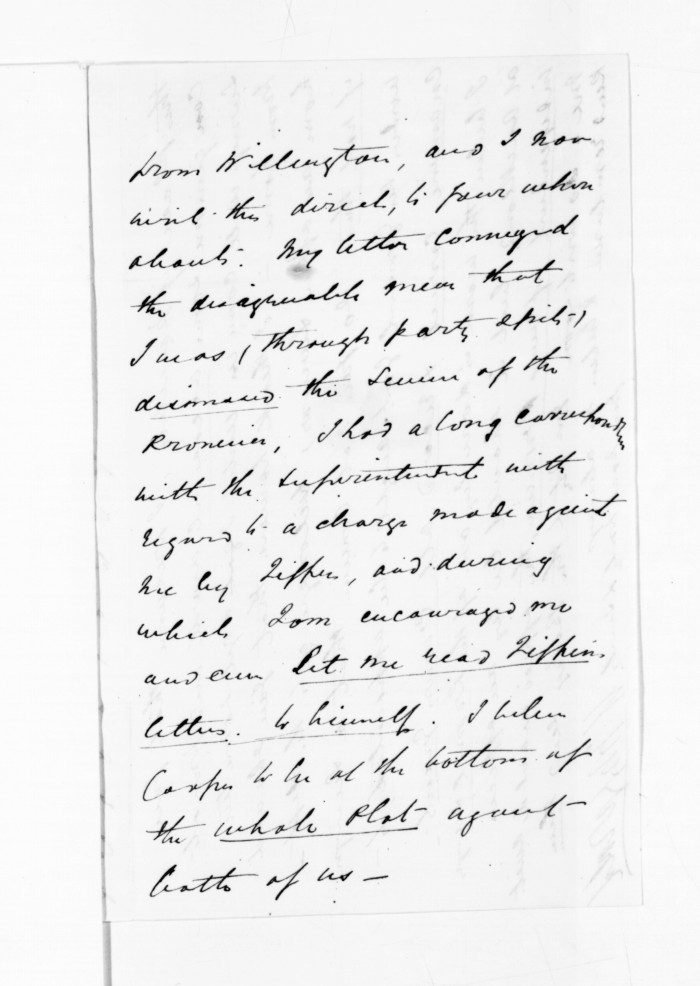 from Wellington, and I now
write this direct, to your where
abouts. My letter conveyed
the disagreeable news that
I was (through party spite)
dismissed the Service of the
Province, I had a long correspondence
with the Superintendent with
regard to a charge made against
me by Tiffen, and during
which Tom encouraged me
and even let me read Tiffen's
letters to himself. I believe
to be at the bottom of
the whole Plot against
both of us —